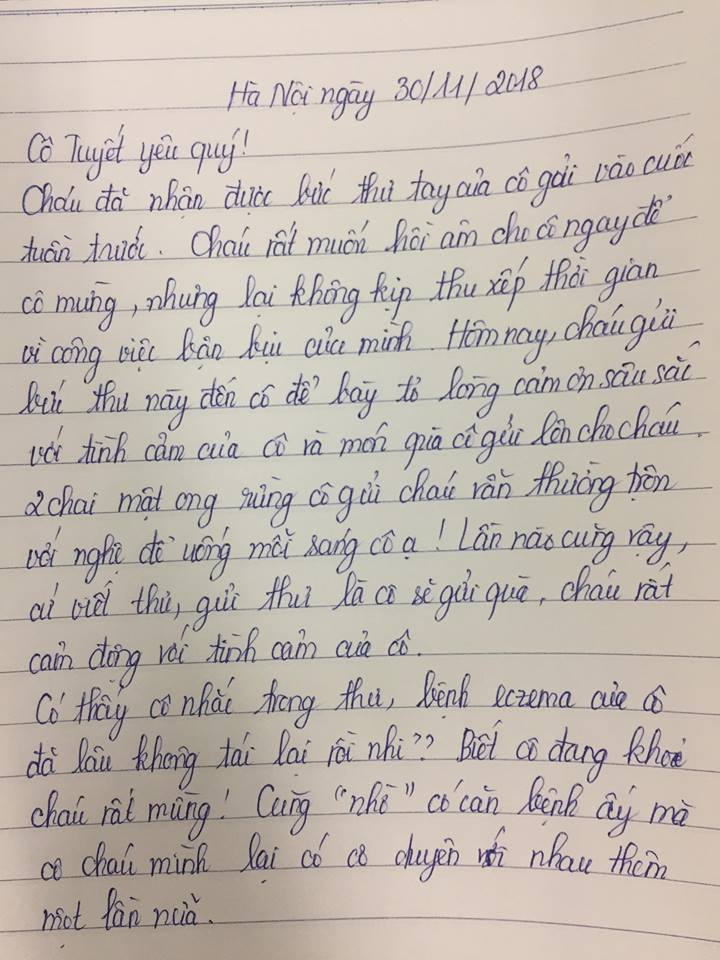 Hà Nội ngày 30/11/2018
Cô Tuyết yêu quý!
Cháu đã nhận được bức thư tay của cô gửi vào cuối
tuần trước. Cháu rất muốn hồi âm cho cô ngay để
cô mừng, nhưng lại không kịp thu xếp thời gian
vì công việc bận bịu của mình. Hôm nay, cháu gửi
bức thư này đến cô để bày tỏ lòng cảm ơn sâu sắc
với tình cảm của cô và món quà cô gửi lên cho cháu.
2 chai mật ong rừng cô gửi cháu vẫn thường trộn
với nghệ để uống mỗi sáng cô ạ! Lần nào cũng vậy,
cứ viết thư, gửi thư là cô sẽ gửi quà, cháu rất
cảm động với tình cảm của cô.
Có thấy cô nhắc trong thư, bệnh eczema của cô
đã lâu không tái lại rồi nhỉ?? Biết cô đang khoẻ
cháu rất mừng! Cũng "nhờ" có căn bệnh ấy mà
cô cháu mình lại có cơ duyên với nhau thêm
một lần nữa.